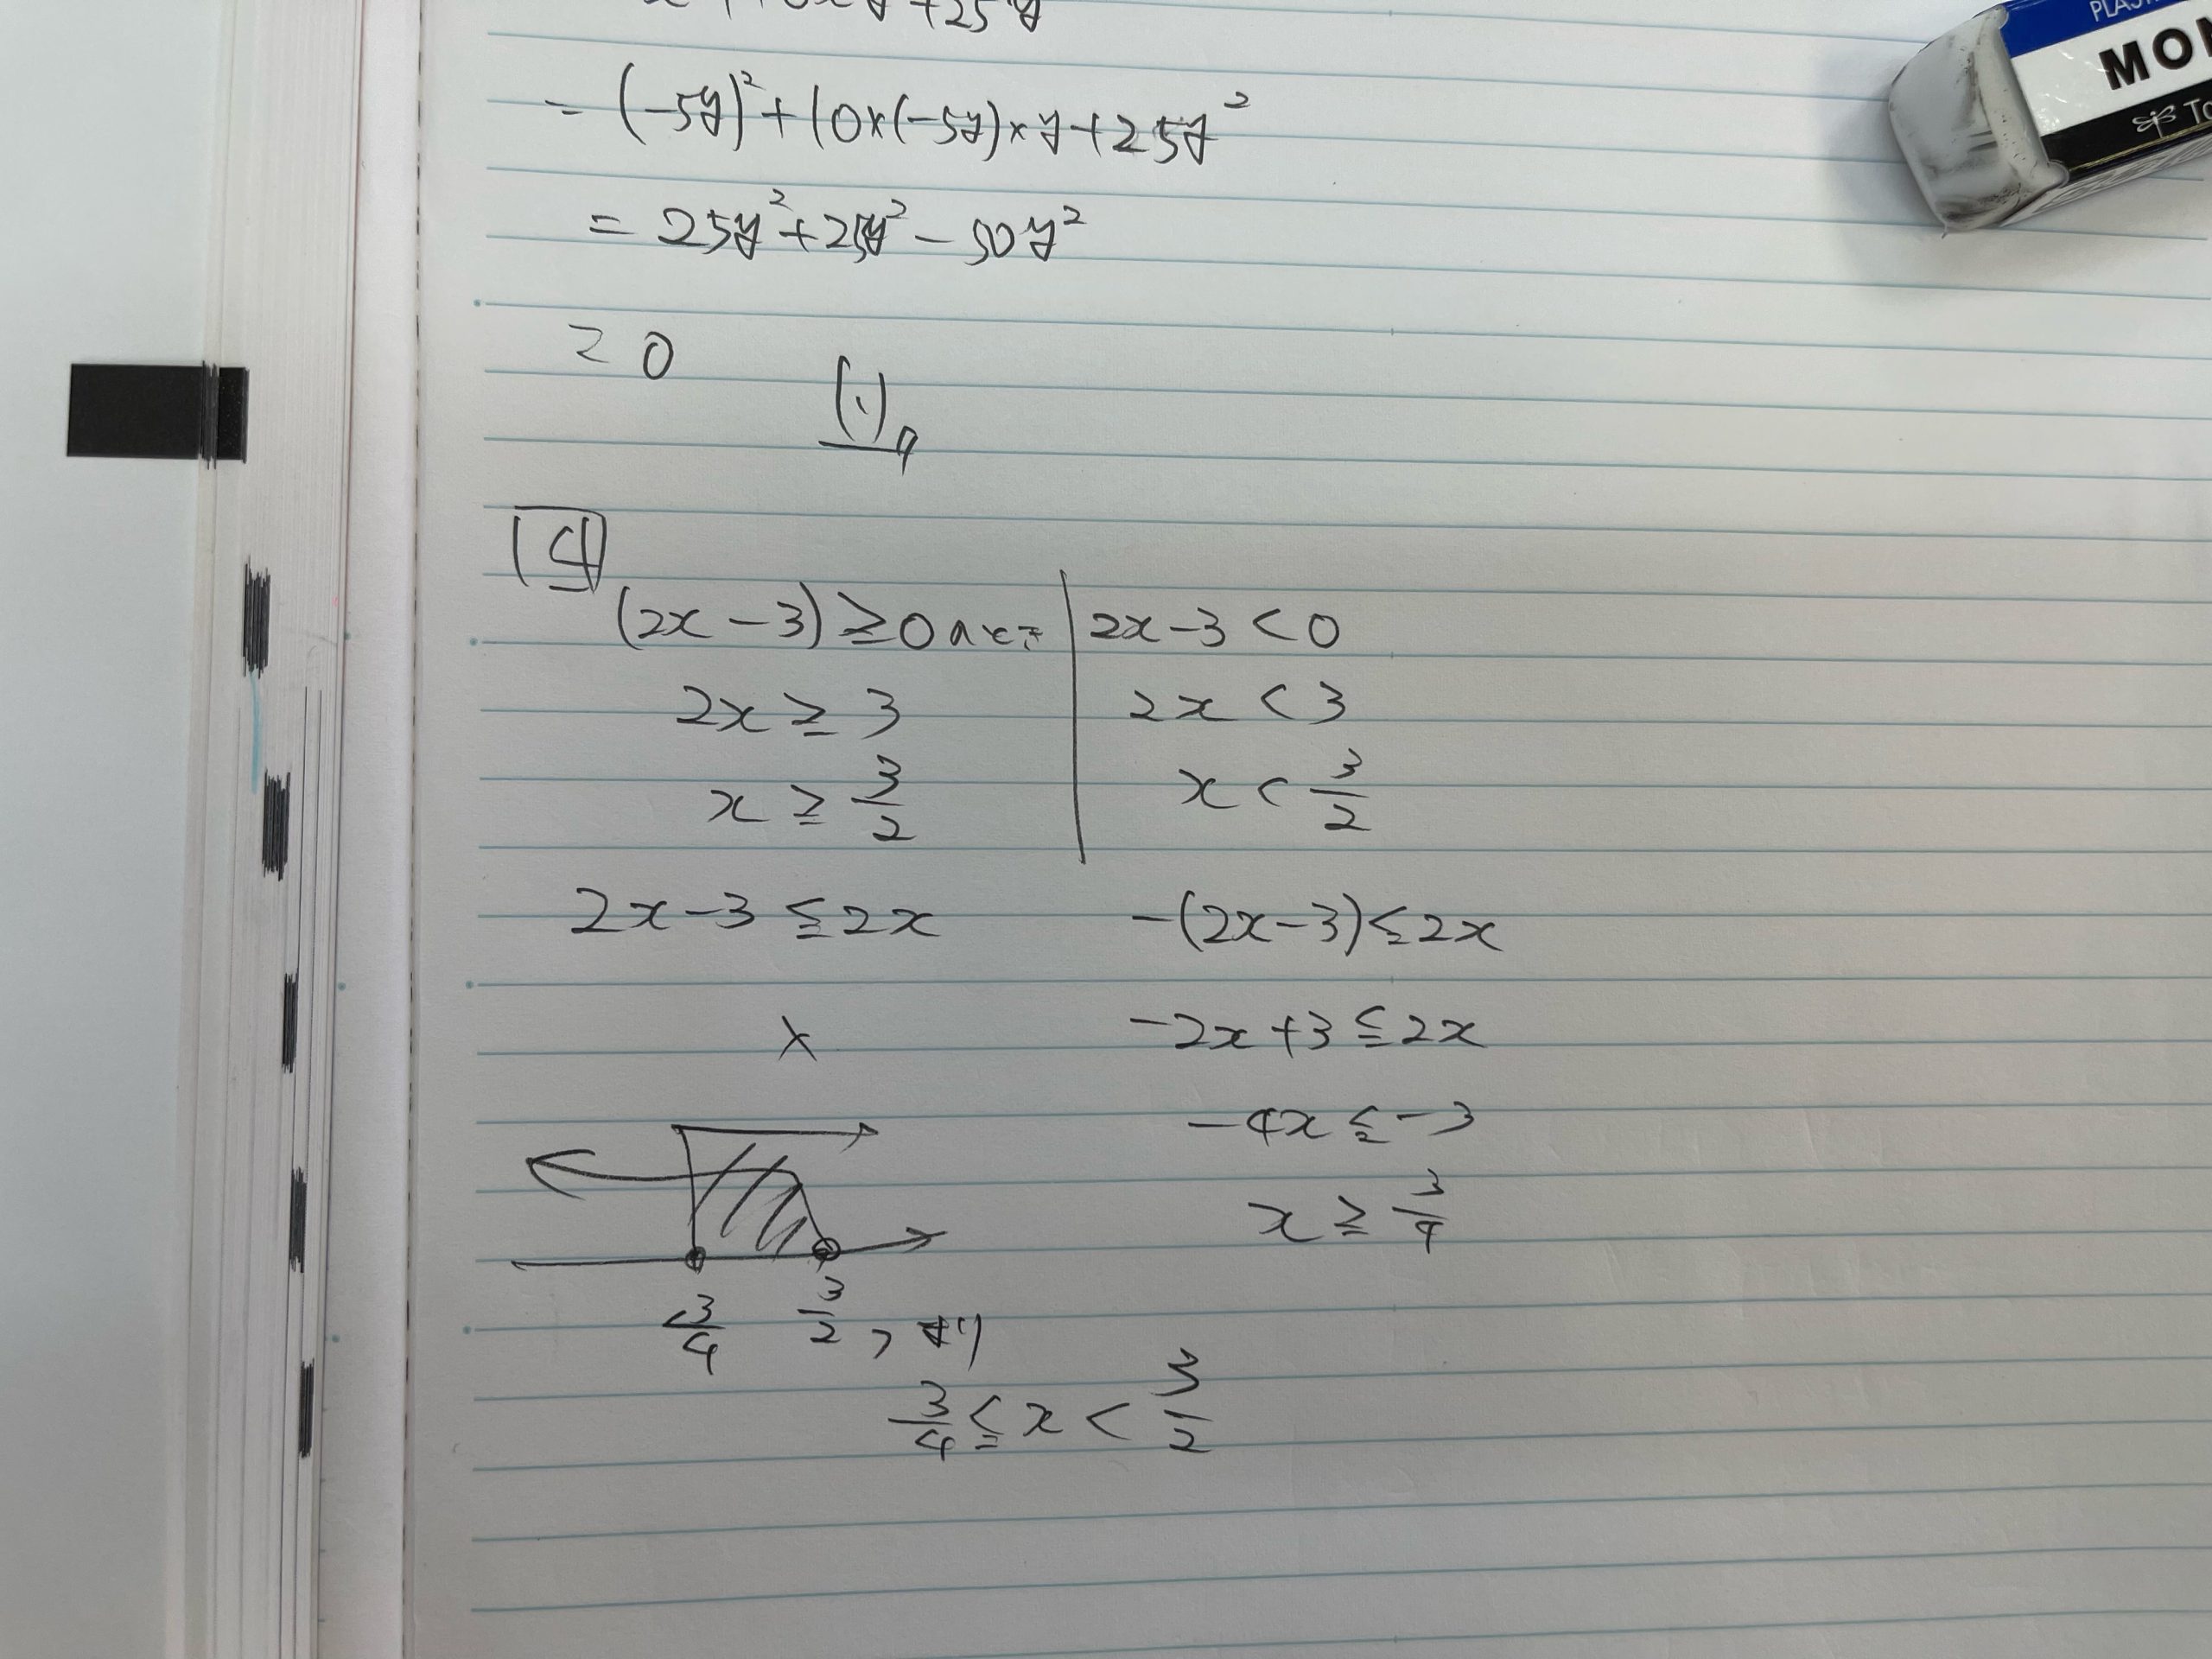 = (-5y)² + 10×(-5y)×y+25y²
= 25y²+25y² - 50y²
= 0
(1)
4
(2x-3) ≧ 0のとき
2x ≧ 3
x ≧ 3/2
2x-3 < 0
2x < 3
x < 3/2
2x-3 ≦ 2x
×
-(2x-3) ≦ 2x
-2x+3 ≦ 2x
-4x ≦ -3
x ≧ 3/4
3/4 3/2 より
3/4 ≦ x < 3/2
MON